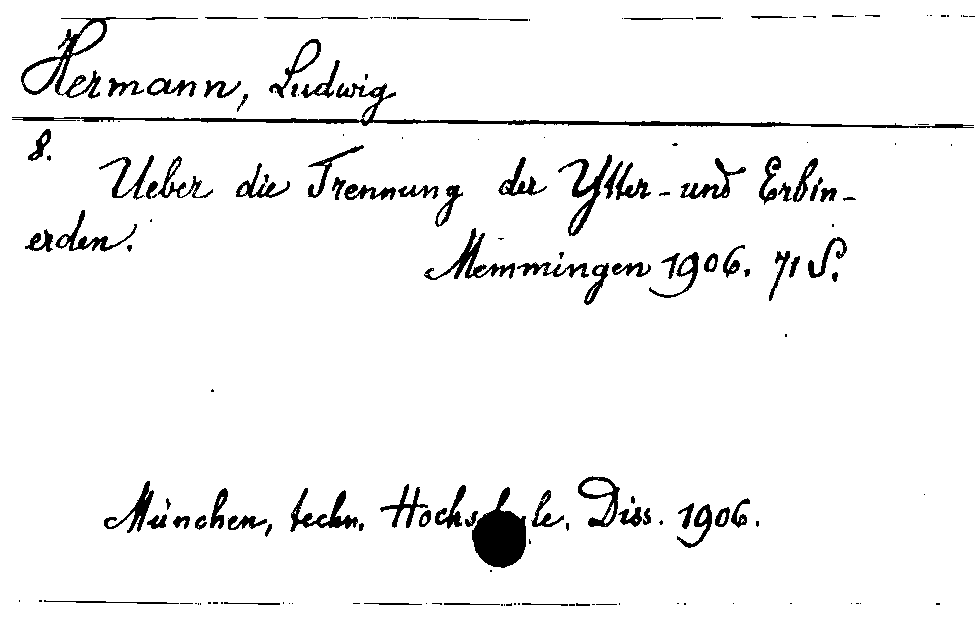 Hermann, Ludwig
8.
Ueber die Trennung der Ytter- und Erbin-
erden.
Memmingen 1906. 71 S.
München, techn. Hochschule, Diss. 1906.